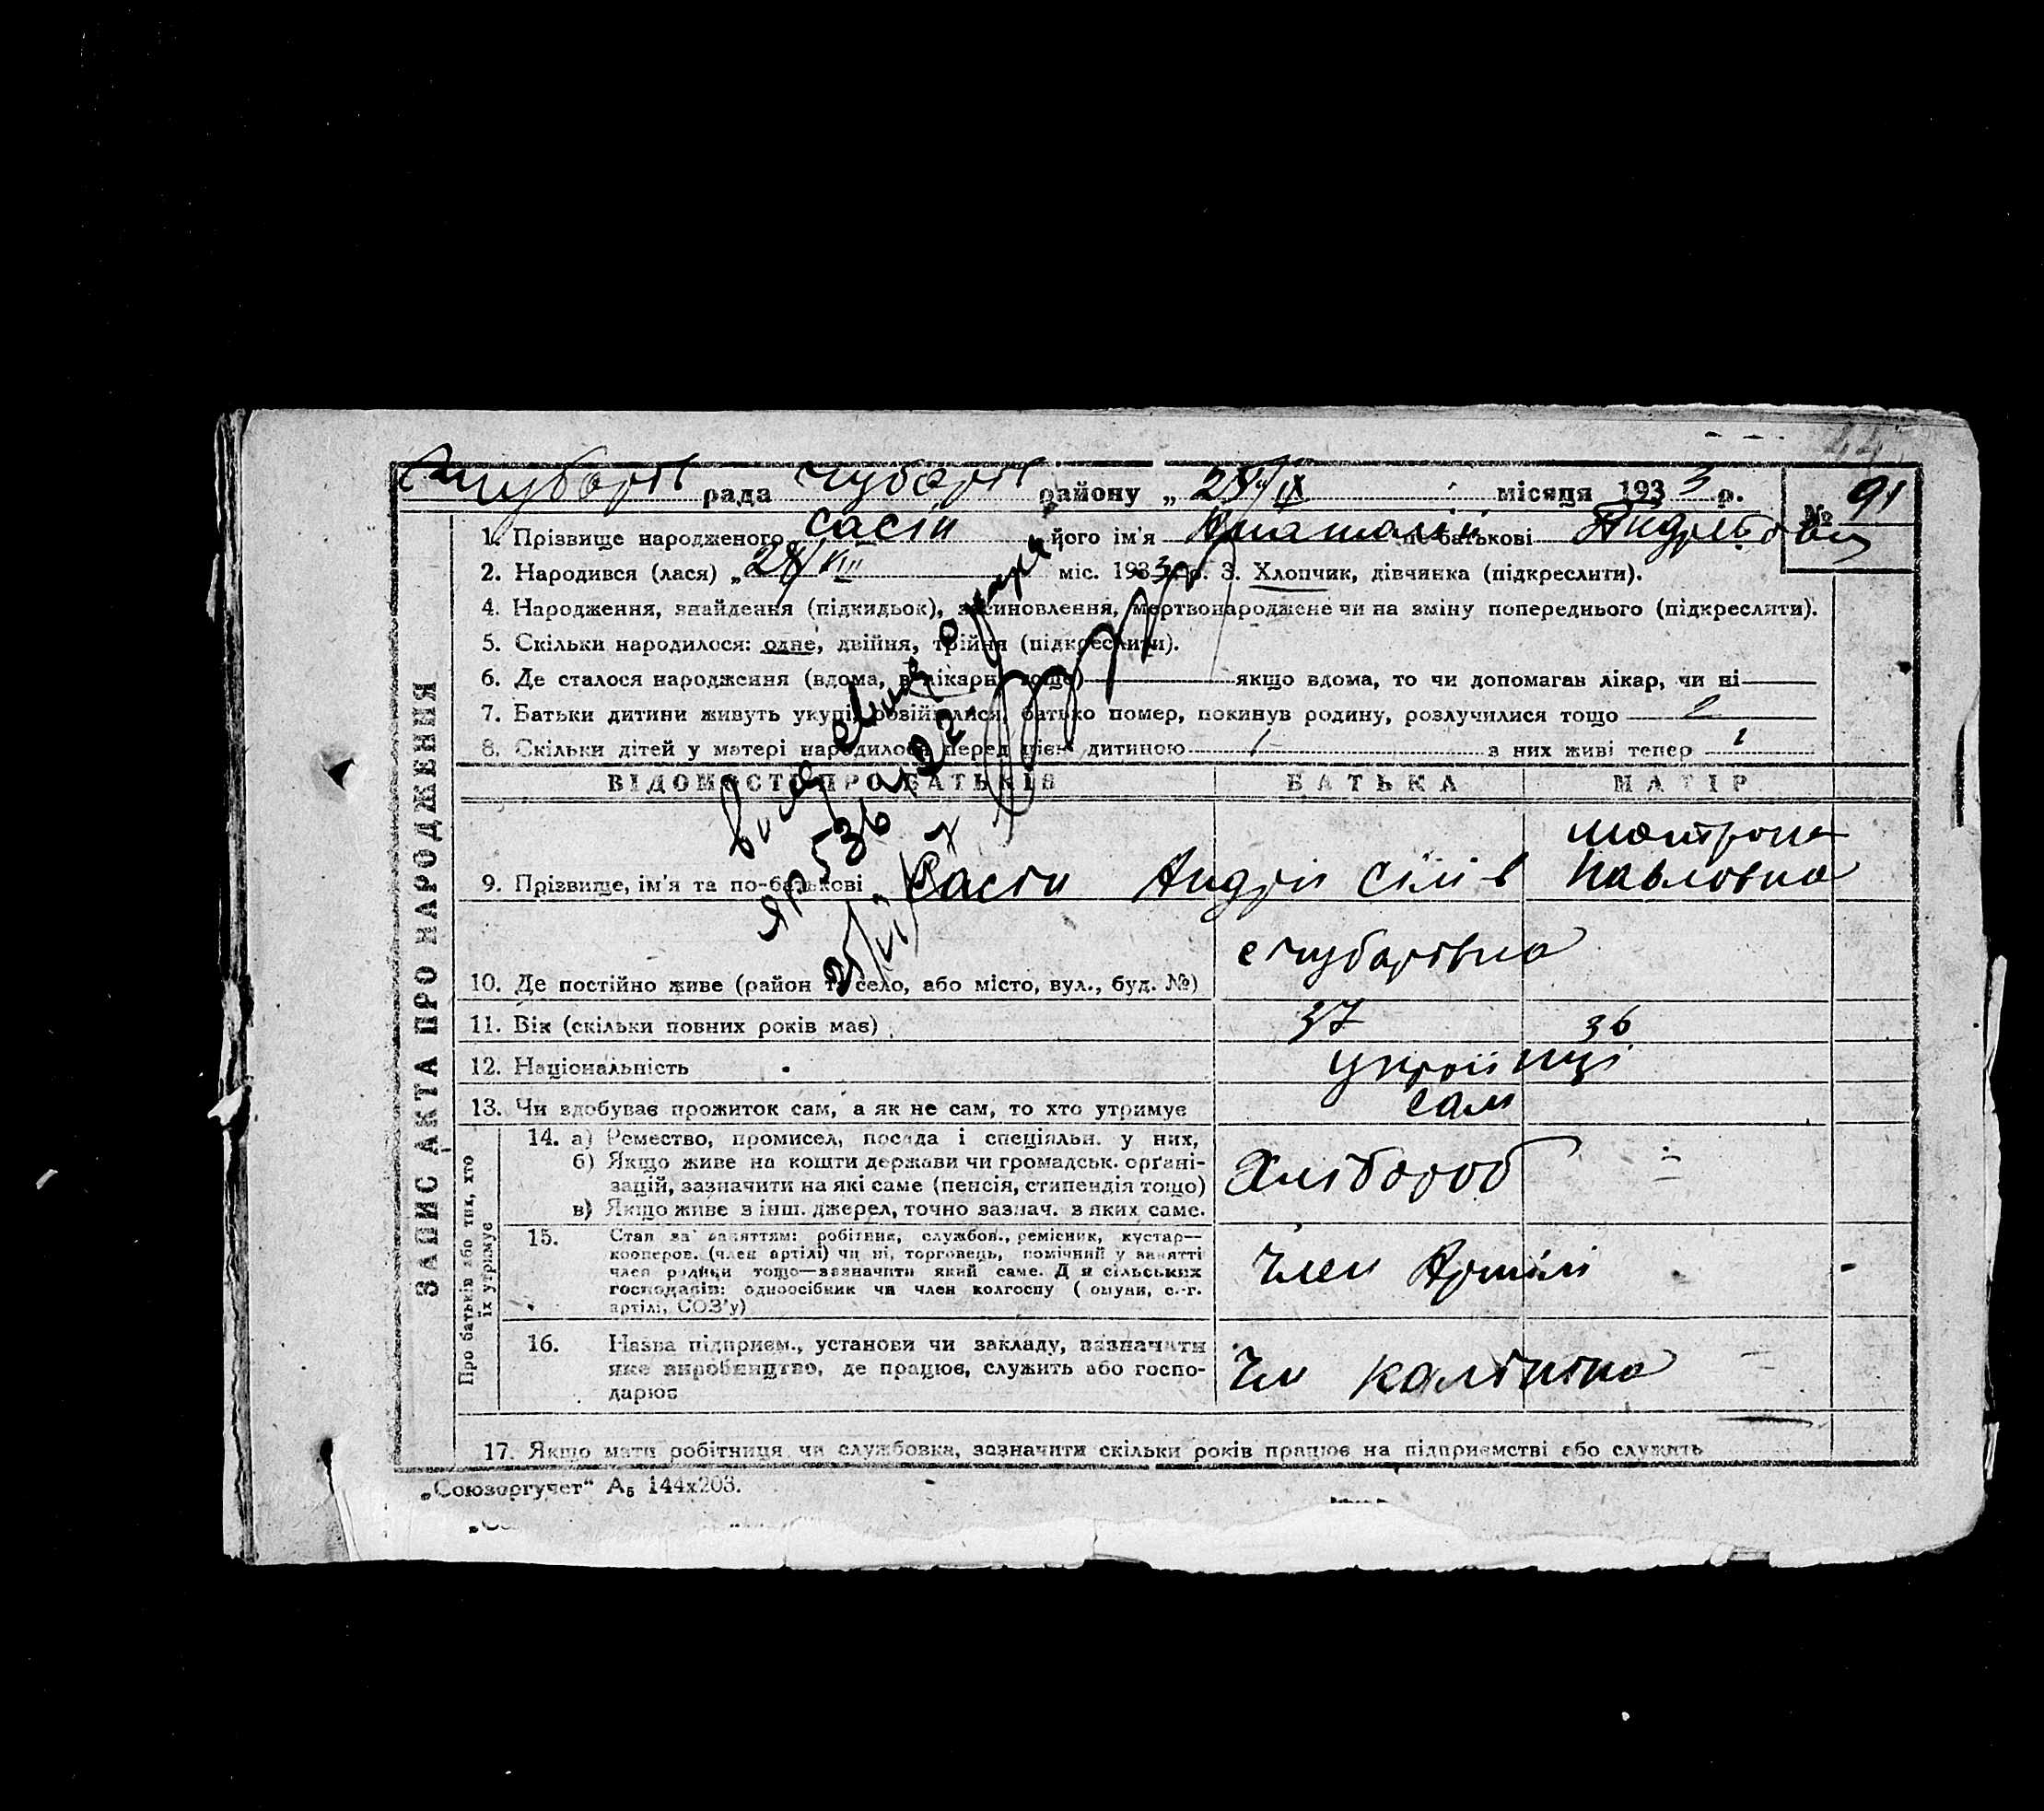 рада району „ 25/IX місяця 1933 р. № 91
1. Прізвище народженого Сасін його ім'я Анатолій по батькові Андрієвич
2. Народився (лася) „ міс. 1933 р. 3. Хлопчик, дівчинка (підкреслити).
4. Народження, знайдення (підкидьок), засиновлення, мертвонароджене чи на зміну попереднього (підкреслити).
5. Скільки народилося: одне, двійня, трійня (підкреслити).
6. Де сталося народження (вдома, в лікарні тощо) якщо вдома, то чи допомагав лікар, чи ні
7. Батьки дитини живуть укупі, розійшлися, батько помер, покинув родину, розлучилися тощо
8. Скільки дітей у матері народилося перед цією дитиною 1 з них живі тепер 1
ВІДОМОСТІ ПРО БАТЬКІВ БАТЬКА МАТІР
Мотрона
9. Прізвище, ім'я та по-батькові Сасін Андрій Павловна
10. Де постійно живе (район та село, або місто, вул., буд. №) с Чубарівка
11. Вік (скільки повних років має) 37 36
12. Національність українці
13. Чи здобуває прожиток сам, а як не сам, то хто утримує сам
14. а) Ремество, промисел, посада і спеціяльн. у них,
б) Якщо живе на кошти держави чи громадськ. орґані-
зацій, зазначити на які саме (пенсія, стипендія тощо)
в) Якщо живе з інш. джерел, точно зазнач. з яких саме.
Хлібороб
15. Стан за заняттям: робітник, службов., ремісник, кустар—
кооперов. (член артілі) чи ні, торговець, помічний у занятті
член родини тощо—зазначити який саме. Для сільських
господарів: одноосібник чи член колгоспу ( омуни, с.-г.
артілі, СОЗ'у)
Член Артілі
16. Назва підприєм., установи чи закладу, зазначити
яке виробництво, де працює, служить або госпо-
дарює
Калініна
17. Якщо мати робітниця чи службовка, зазначити скільки років працює на підприємстві або служить
ЗАПИС АКТА ПРО НАРОДЖЕННЯ
Про батьків або тих, хто
їх утримує
„Союзоргучет“ А₅ 144х203.